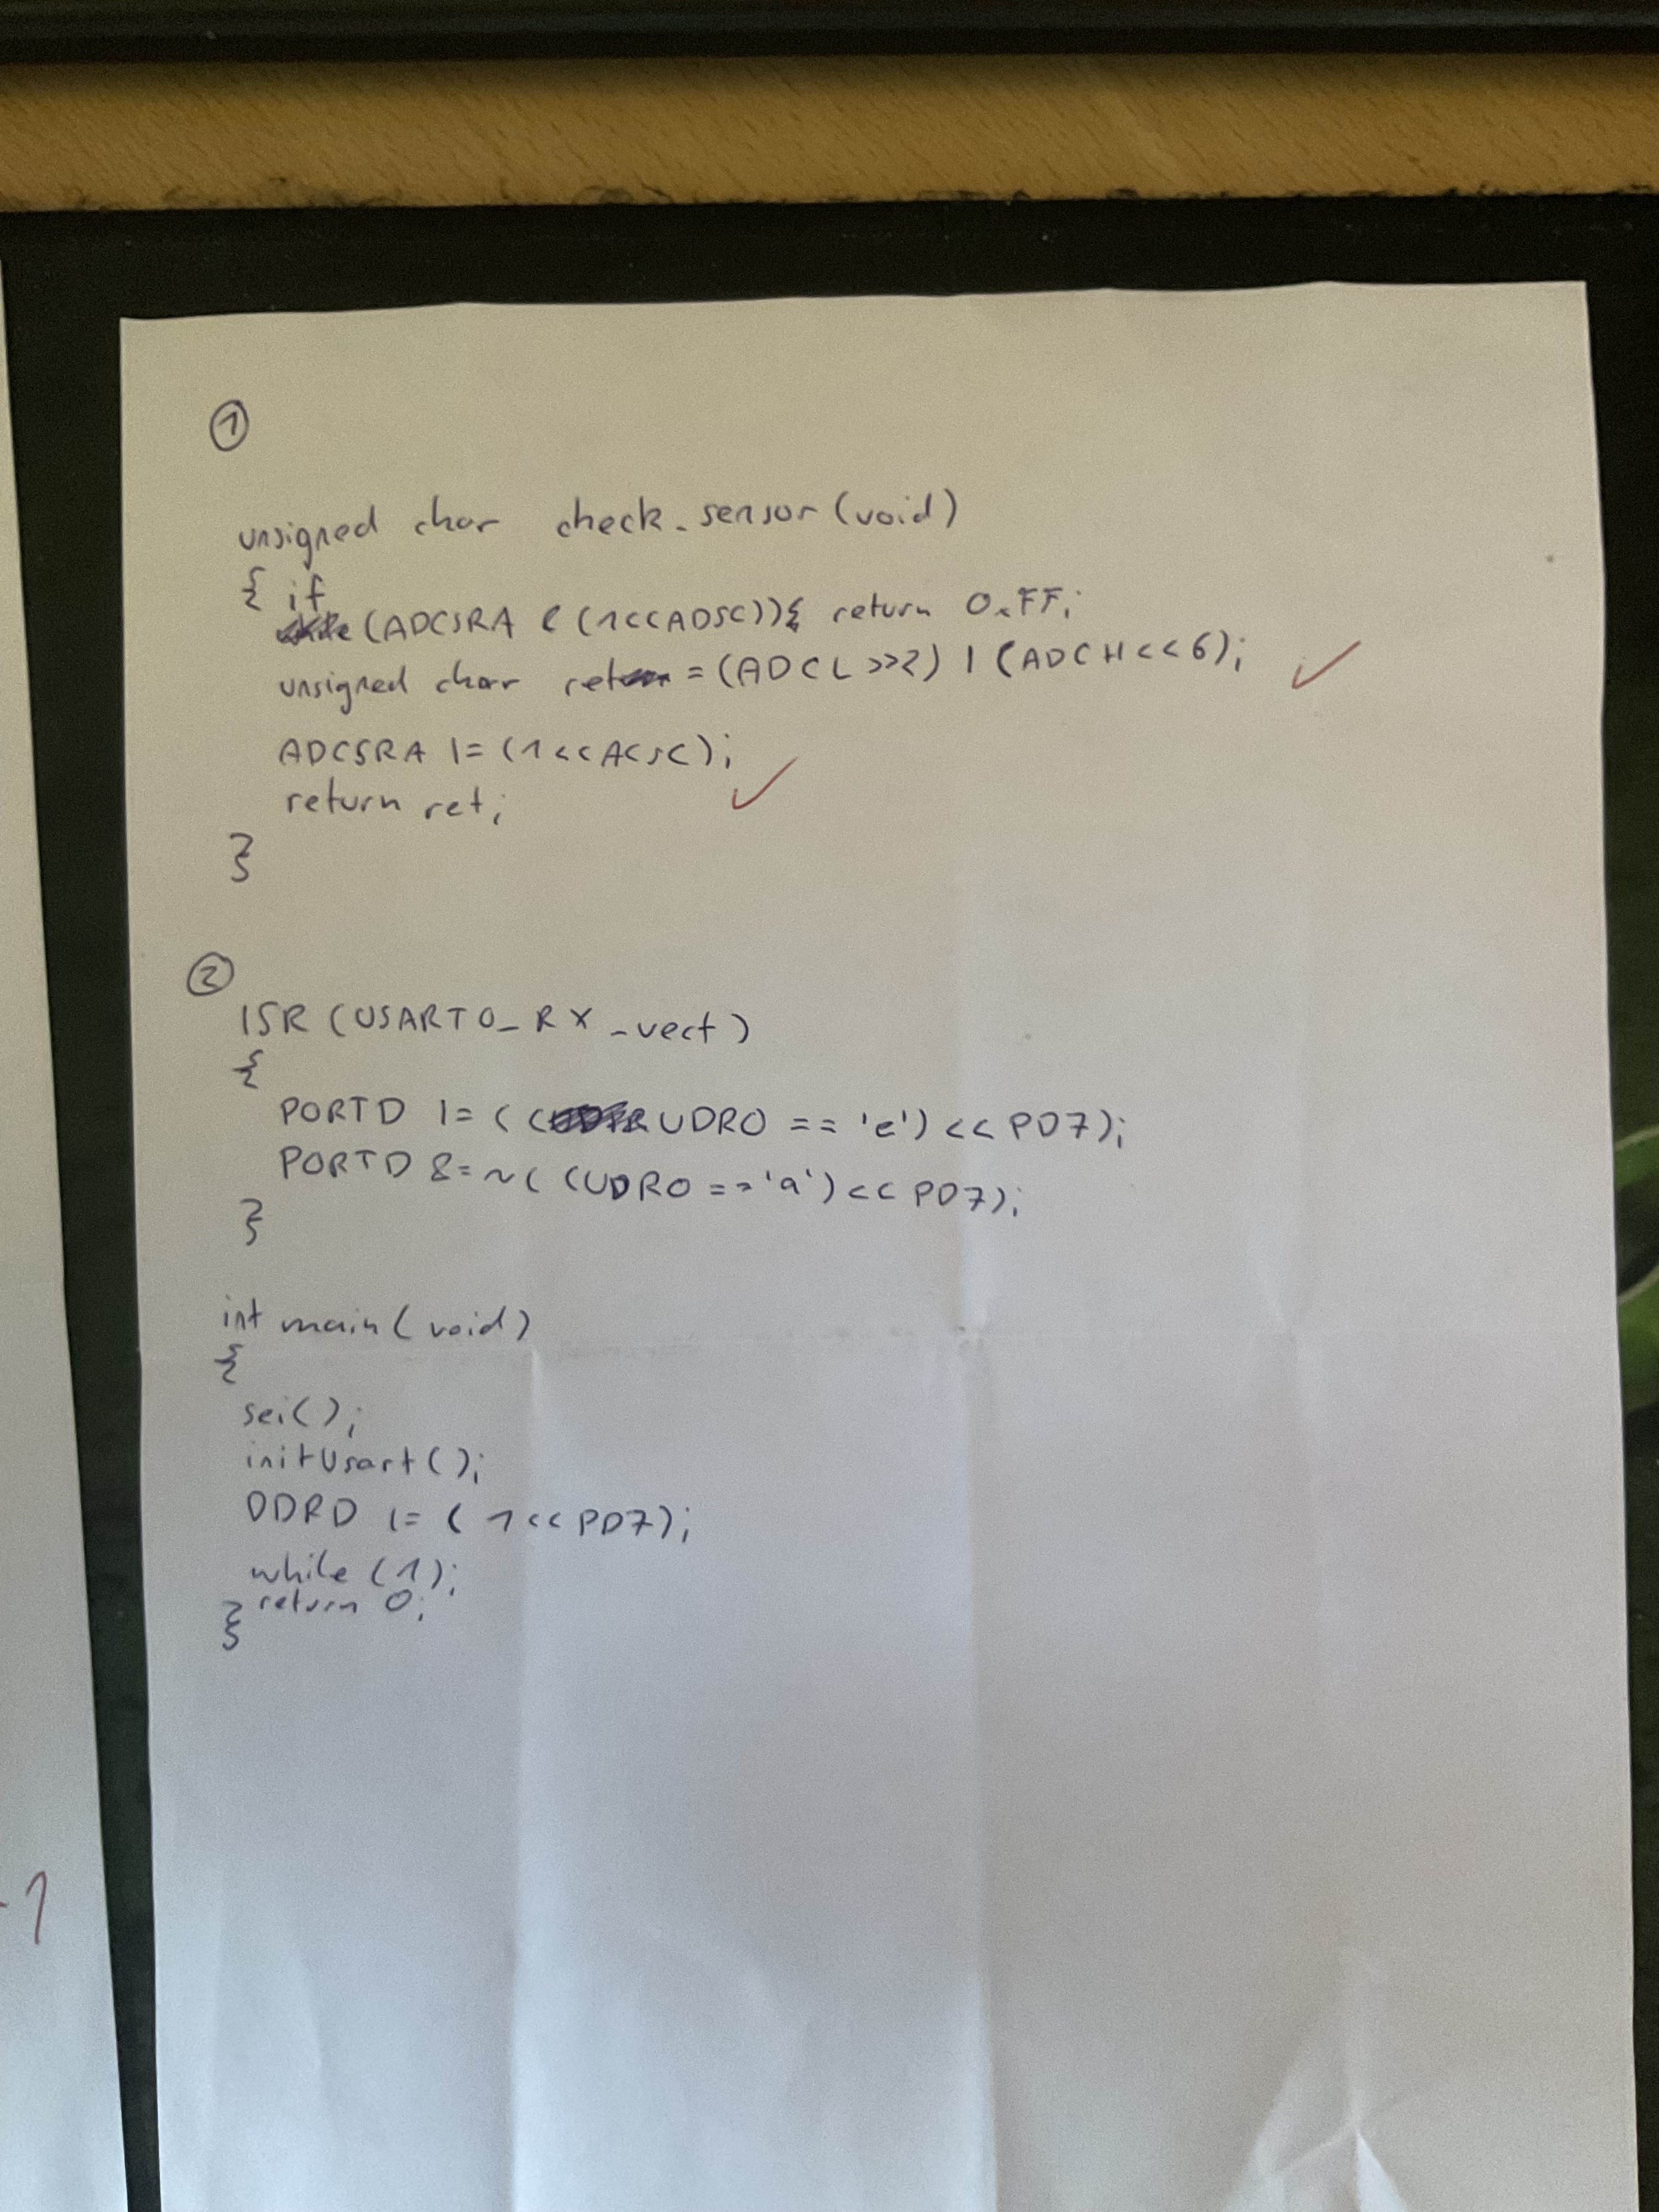 1
unsigned char check_sensor(void)
{ if
(ADCSRA & (1<<ADSC)){ return 0xFF;
unsigned char ret = (ADCL >>2) | (ADCH<<6);
ADCSRA |= (1<<ACSC);
return ret;
}
2
ISR (USART0_RX_vect)
{
PORTD |= ((UDR0 == 'e') << PD7);
PORTD &= ~((UDR0 == 'a') << PD7);
}
int main(void)
{
sei();
initUsart();
DDRD |= (1<<PD7);
while (1);
return 0;
}
-1